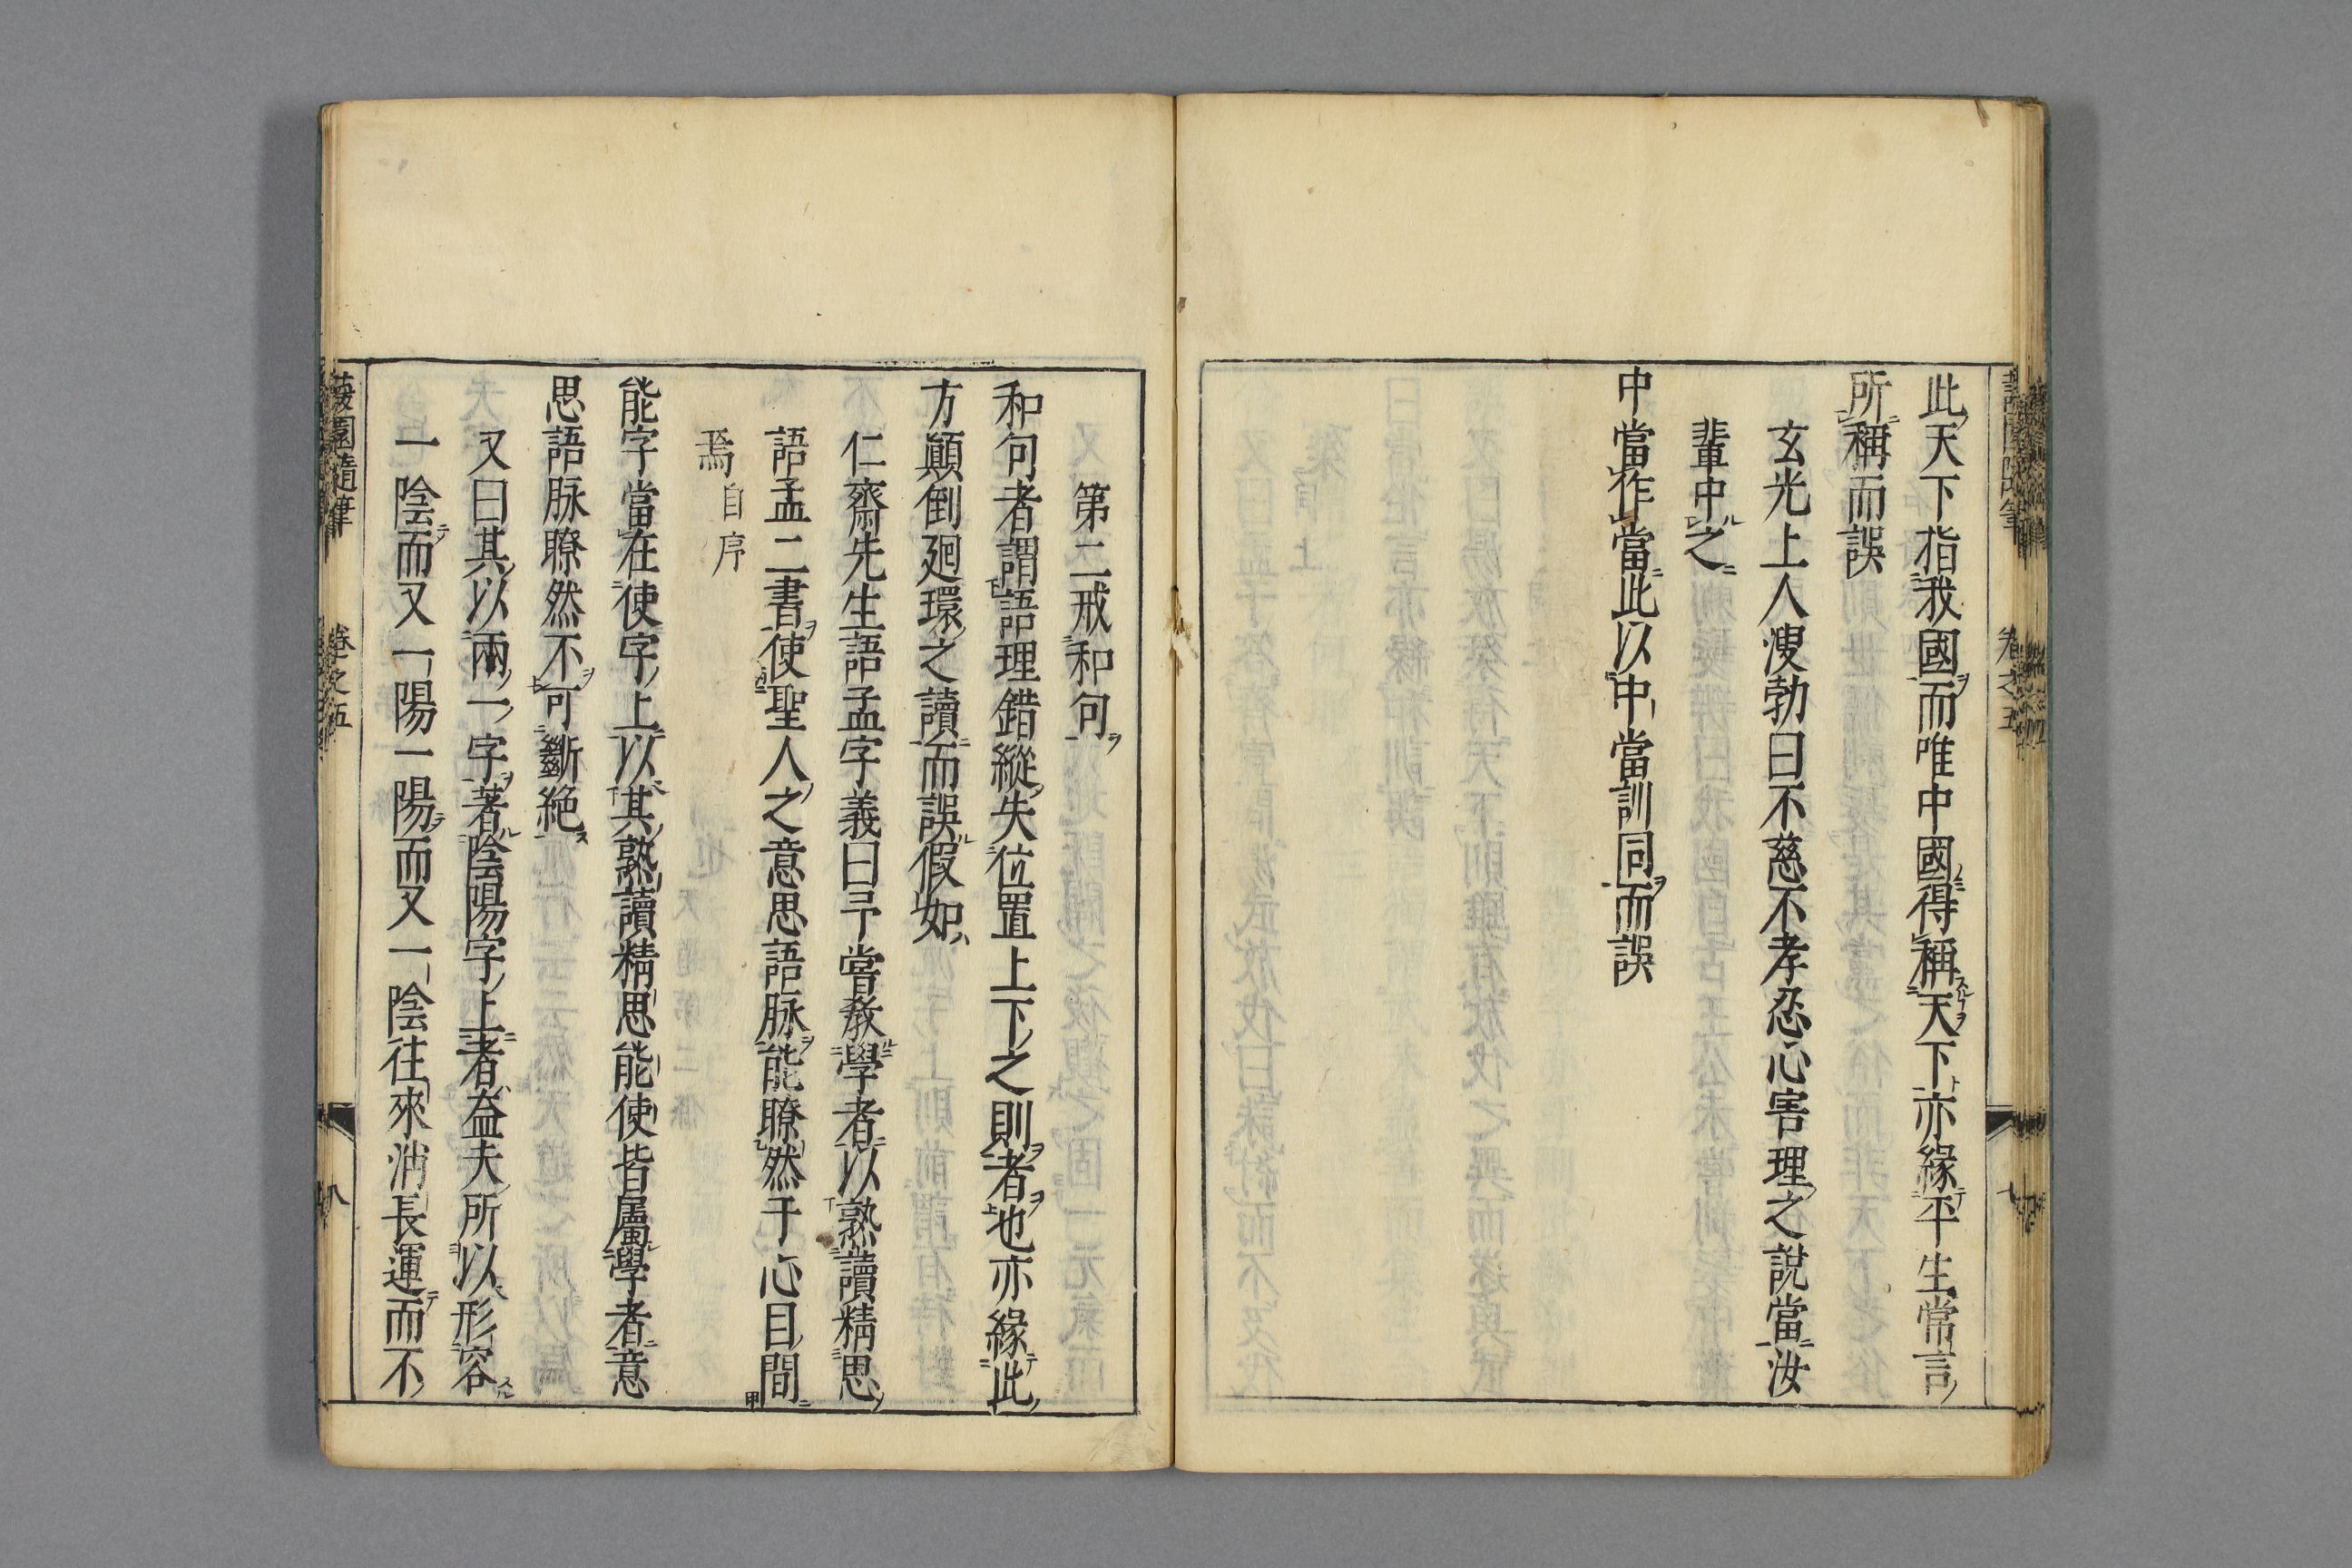 此天下指我國而唯中國得稱天下亦緣平生常言
所稱而誤
玄光上人溲勃曰不慈不孝忍心害理之說當汝
輩中之
中當作當此以中當訓同而誤
第二戒和句
和句者謂語理錯縱失位置上下之則者也亦緣此
方顚倒廻環之讀而誤假如
仁齋先生語孟字義曰予嘗教學者以熟讀精思
語孟二書使聖人之意思語脉能瞭然于心目間
焉 自序
能字當在使字上以其熟讀精思能使皆屬學者意
思語脉瞭然不可斷絶
又曰其以兩一字著陰陽字上者益夫所以形容
一陰而又一陽一陽而又一陰往來消長運而不
蘐園隨筆 卷之五 八